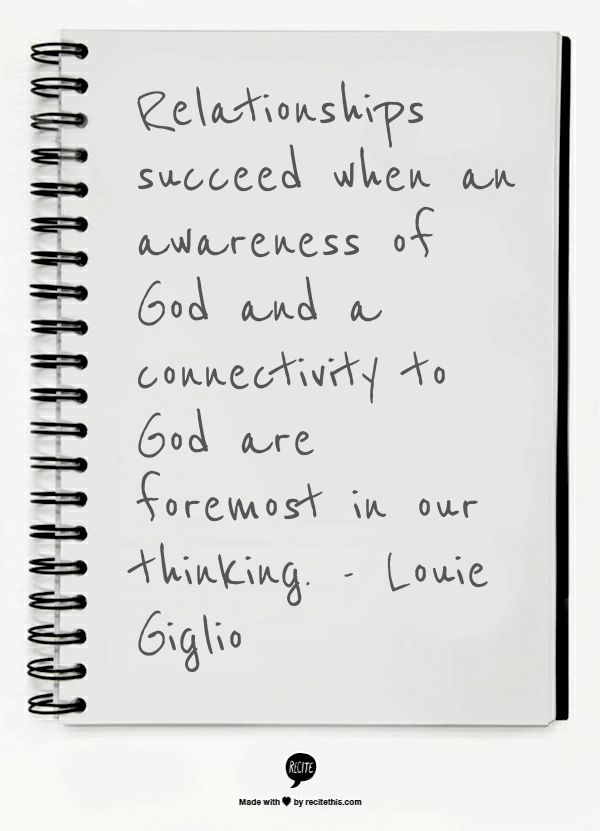 Relationships
succeed when an
awareness of
God and a
connectivity to
God are
foremost in our
thinking. - Louie
Giglio
RECITE
Made with ♥ by recitethis.com